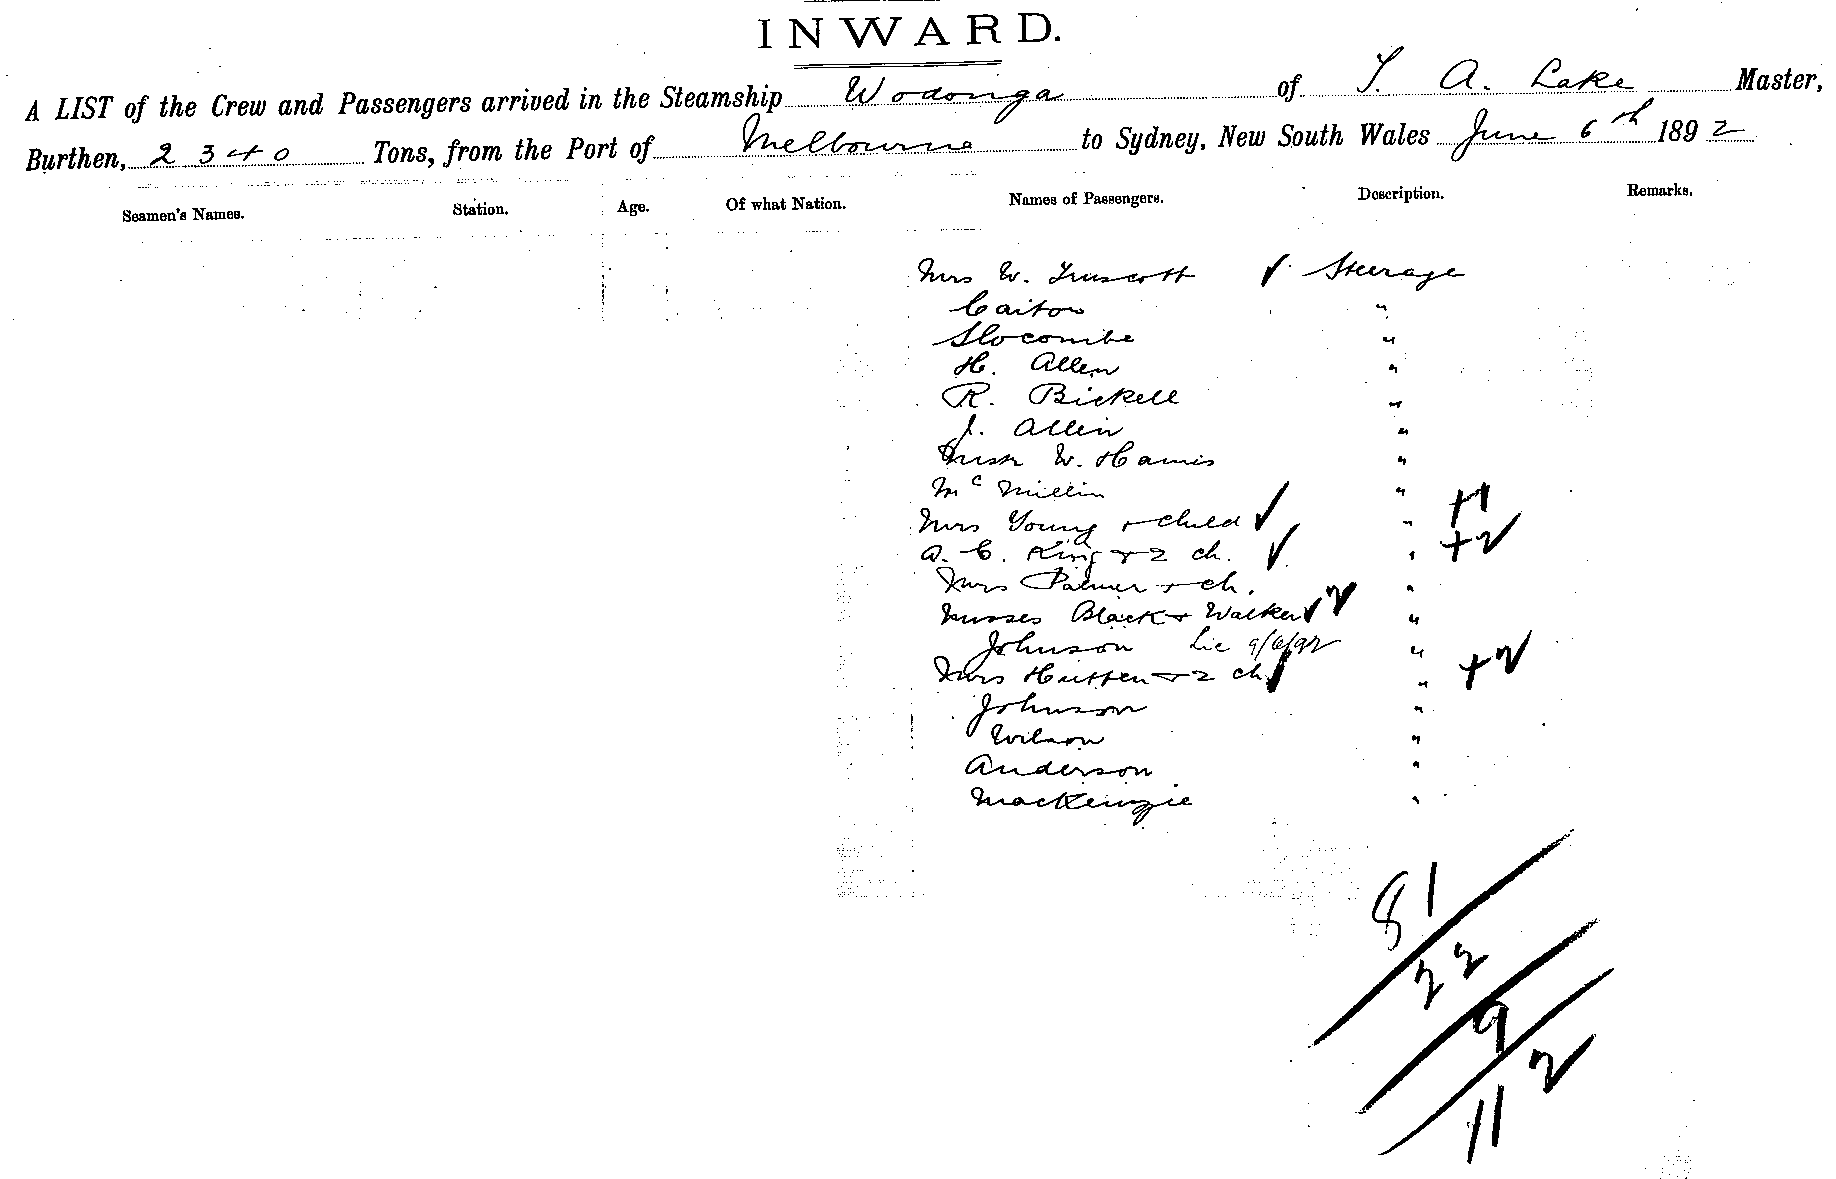 INWARD.
A LIST of the Crew and Passengers arrived in the Steamship Wodonga of T. A. Lake Master,
Burthen, 2340 Tons, from the Port of Melbourne to Sydney, New South Wales June 6th 1892
Seamen's Names. Station. Age. Of what Nation. Names of Passengers. Description. Remarks.
Mrs W. Truscott ✓ Steerage
Caiton "
Slocombe "
H. Allen "
R. Bickell "
J. Allen "
W. Harris "
Mc Millin " +1
Mrs Young + child ✓ "
A. C. King + 2 ch. ✓ " +2
Mrs Palmer + ch. "
Misses Black + Walker ✓ 2 "
Johnson Lic 9/6/92 "
Mrs Hutten + 2 ch ✓ " +2
Johnson "
Wilson "
Anderson "
MacKenzie "
81
22
9
112